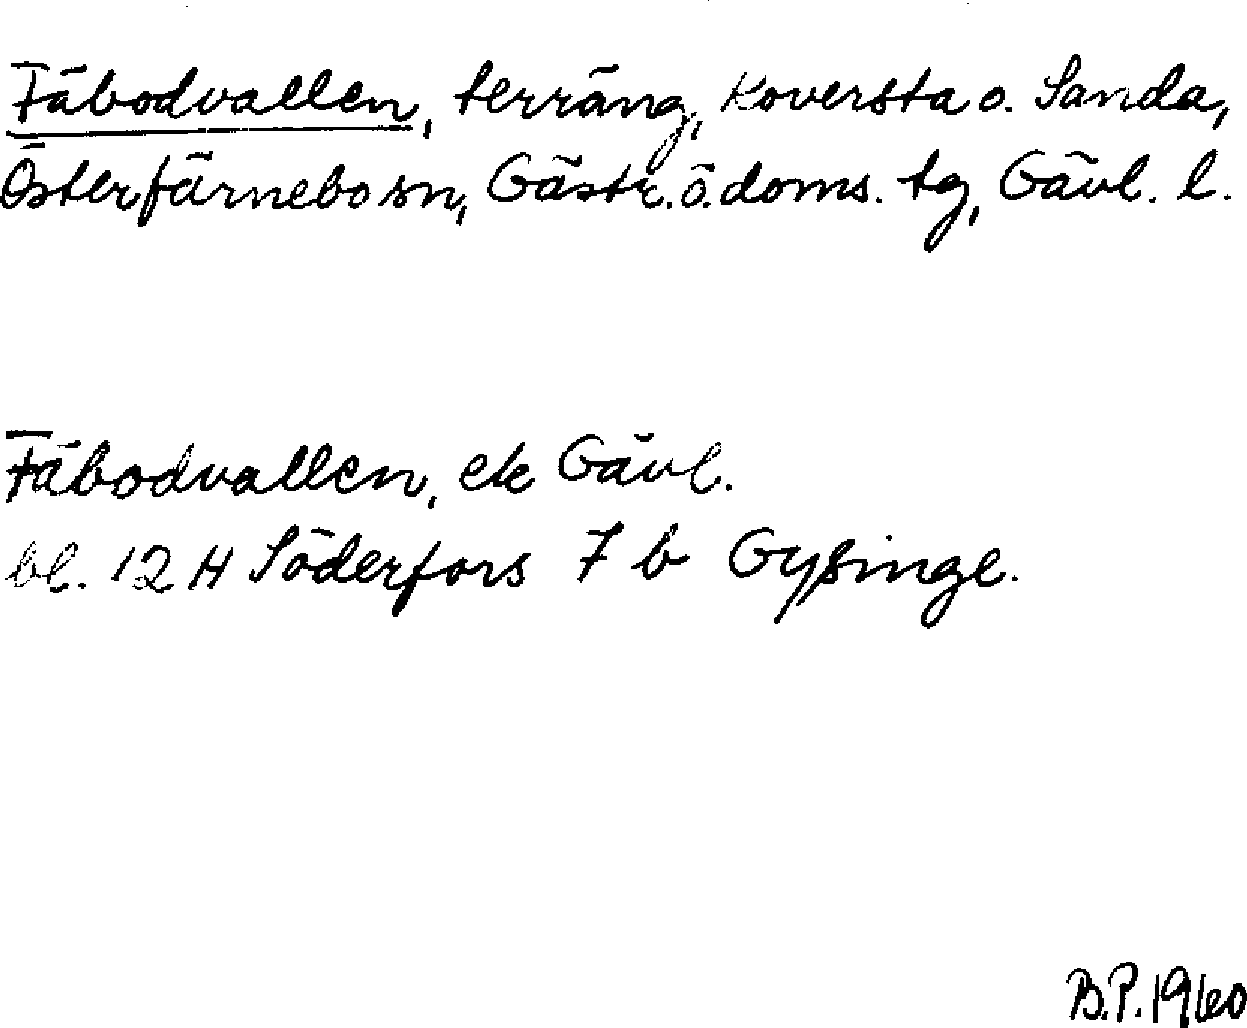 Fäbodvallen, terräng, Koversta o. Sanda,
Österfärnebo sn, Gästr. ö. doms. tg, Gävl. l.
Fäbodvallen, ek Gävl.
bl. 12 H Söderfors 7 b Gysinge.
B.P. 1960